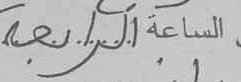 الساعة الرابعة